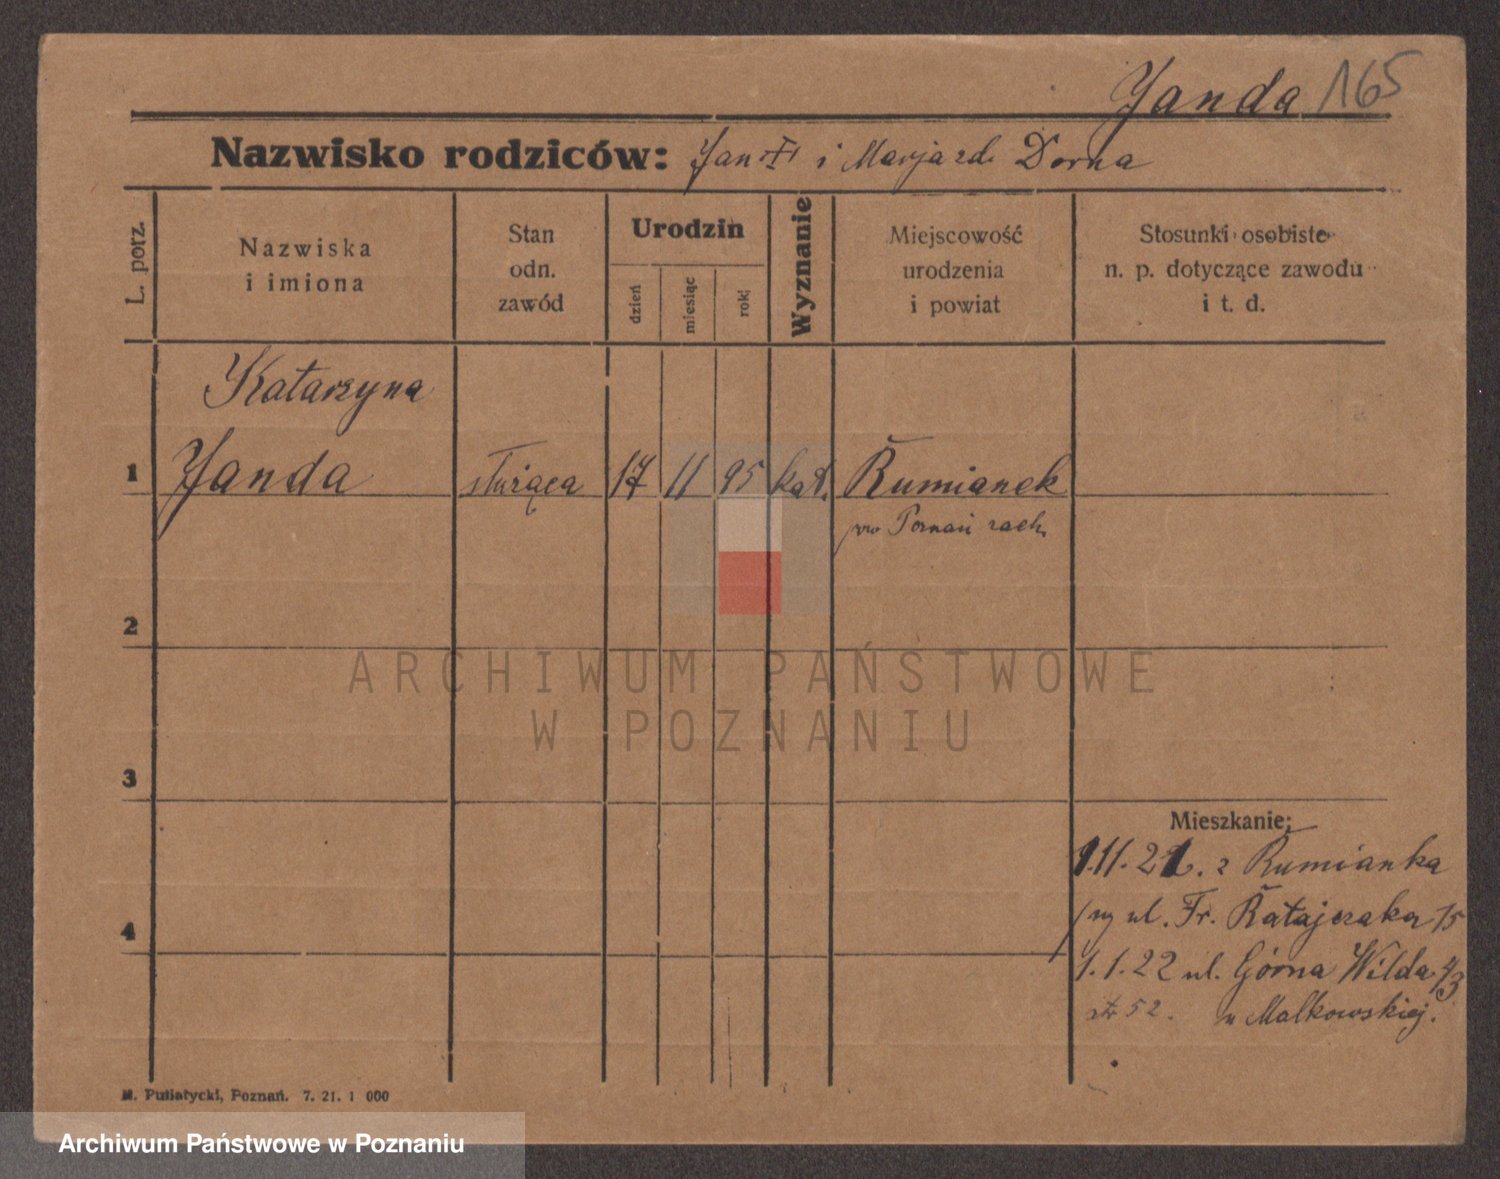 Janda 165
Nazwisko rodziców: Jan i Marja zd. Dorna
L. porz.
Nazwiska
i imiona
Stan
odn.
zawód
Urodzin
dzień
miesiąc
rok
Wyznanie
Miejscowość
urodzenia
i powiat
Stosunki osobiste
n. p. dotyczące zawodu
i t. d.
Katarzyna
1 Janda służąca 17 11 95 kat. Rumianek
pw Poznań zach.
2
ARCHIWUM PAŃSTWOWE
W POZNANIU
3
Mieszkanie:
1.11.21. z Rumianka
ul. Fr. Ratajczaka 15
4
1.1.22 ul. Górna Wilda
str 52. u Malkowskiej.
M. Putiatycki, Poznań. 7. 21. 1 000
Archiwum Państwowe w Poznaniu